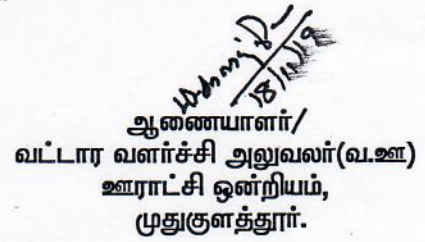 18/11/19
ஆணையாளர்/
வட்டார வளர்ச்சி அலுவலர்(வ.ஊ)
ஊராட்சி ஒன்றியம்,
முதுகுளத்தூர்.